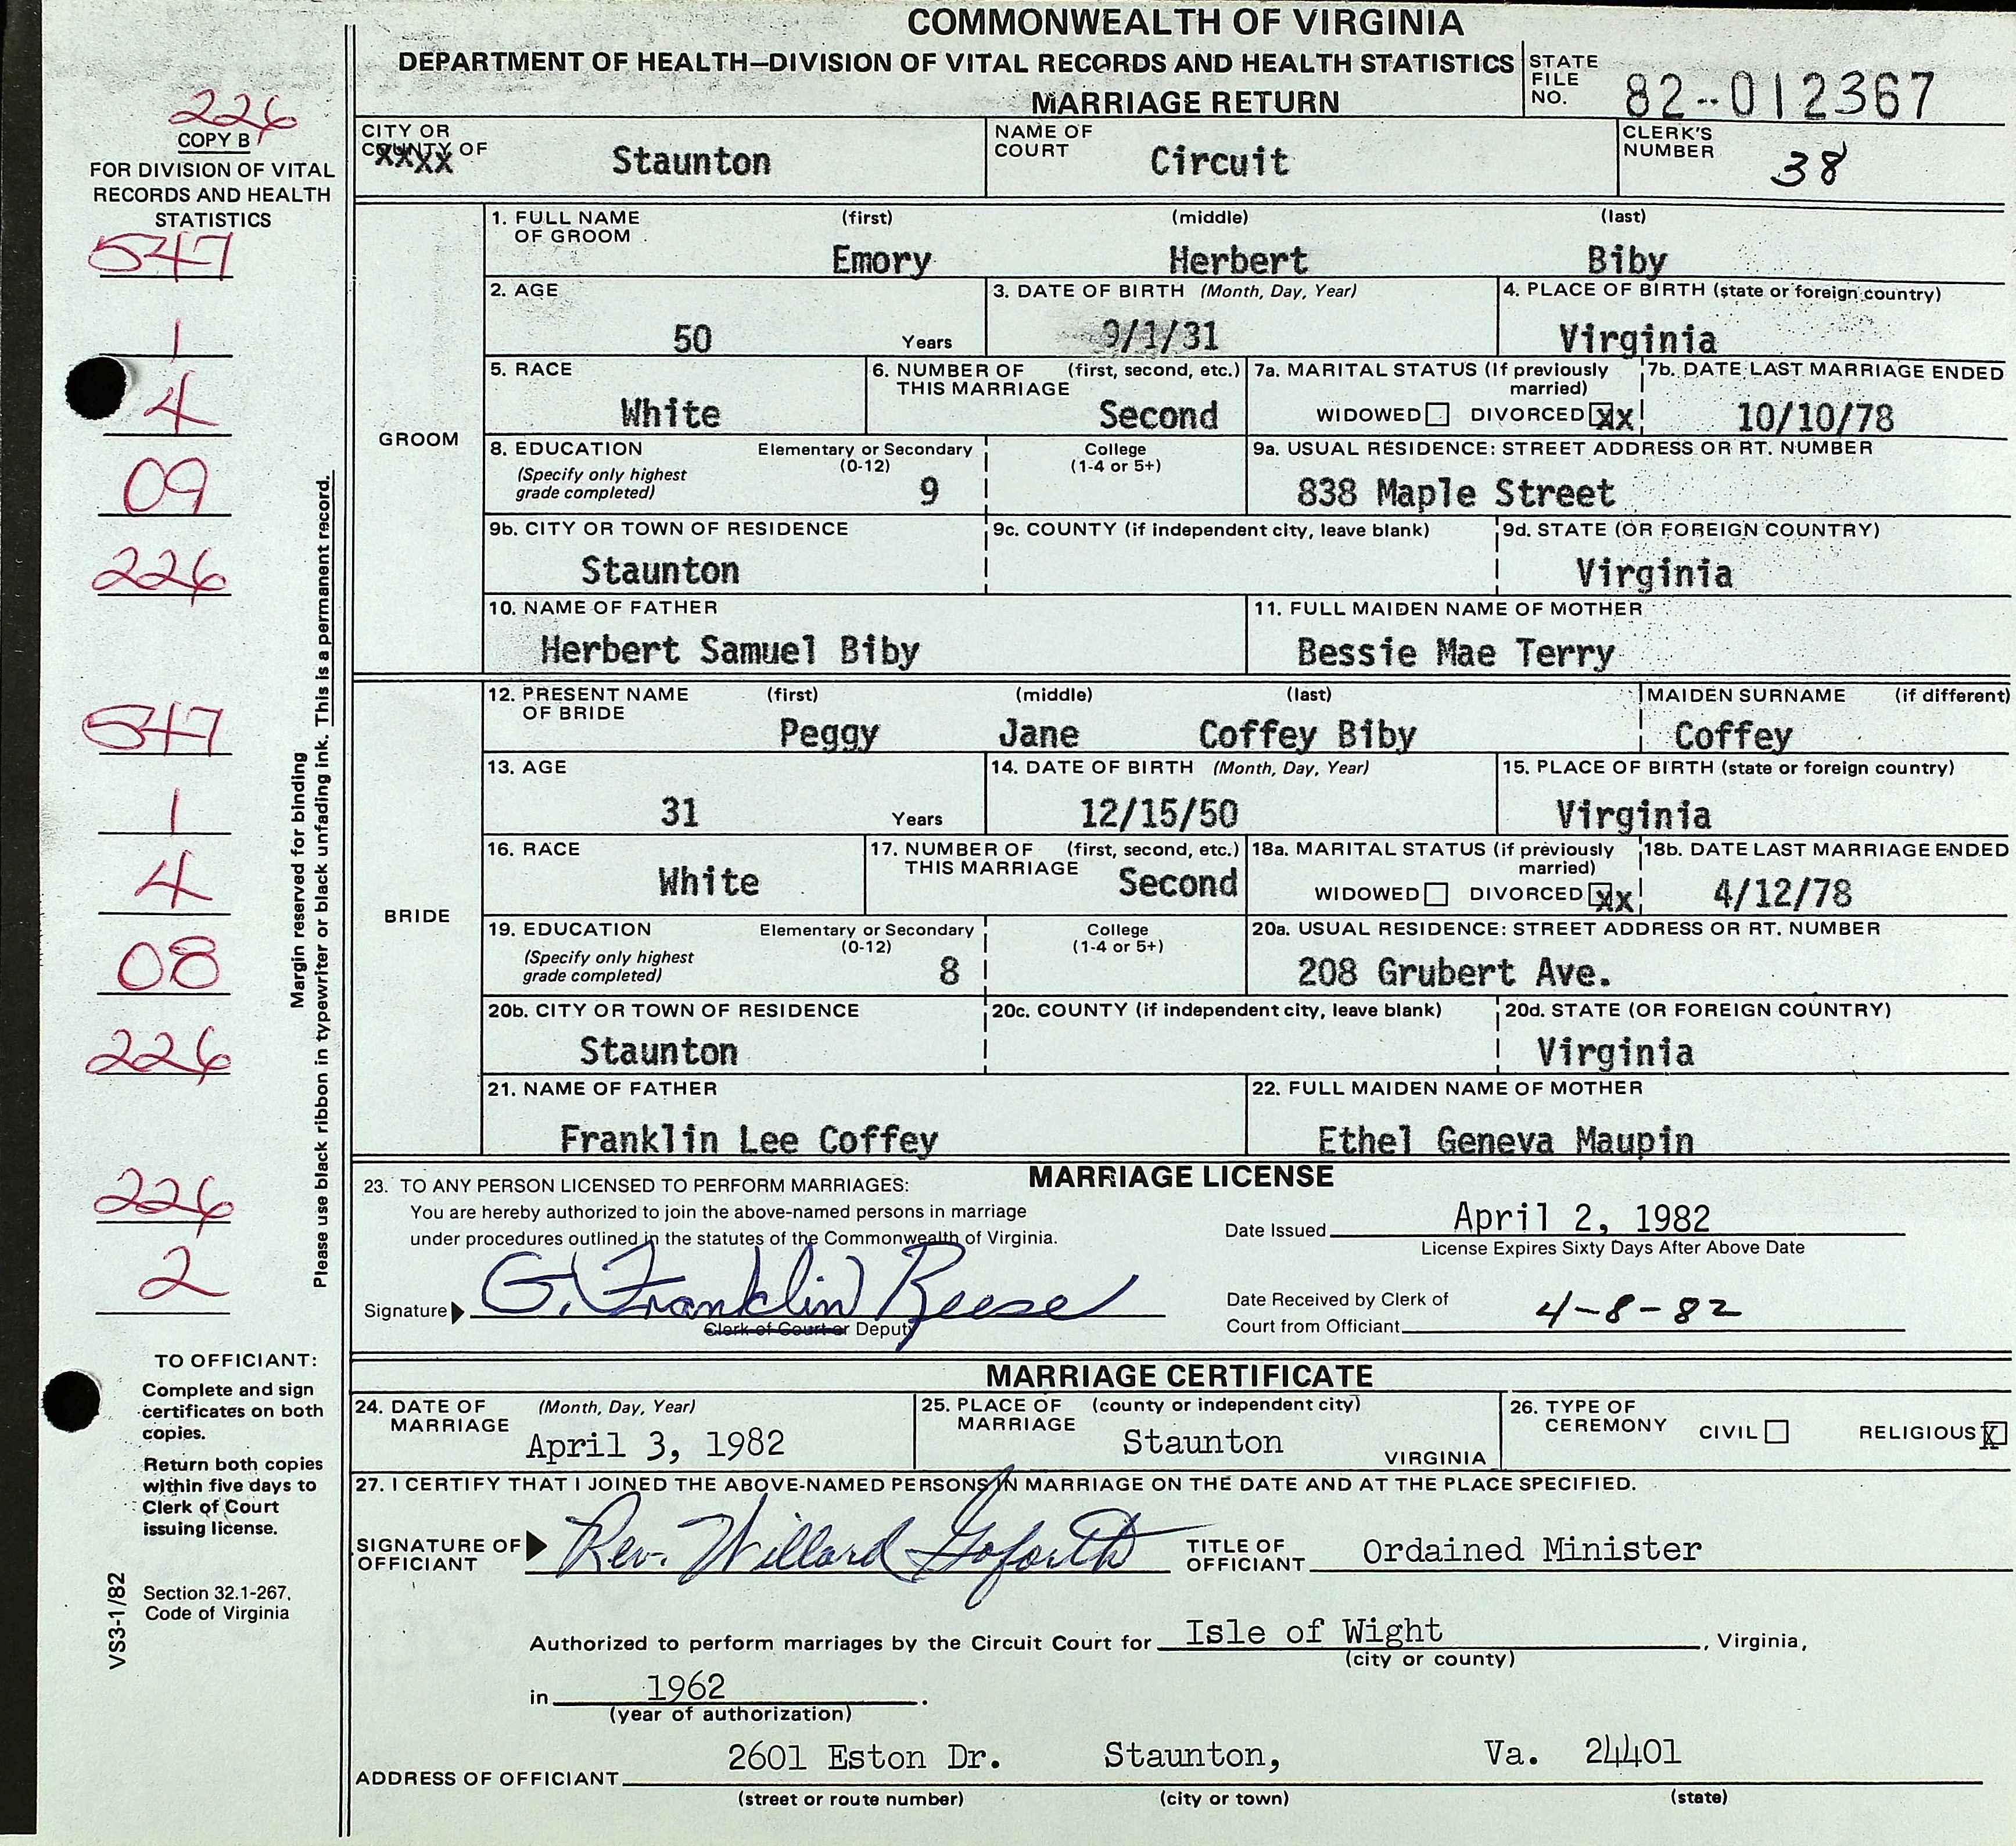 COMMONWEALTH OF VIRGINIA
DEPARTMENT OF HEALTH—DIVISION OF VITAL RECORDS AND HEALTH STATISTICS
MARRIAGE RETURN
STATE FILE NO. 82--012367
226
COPY B
FOR DIVISION OF VITAL
RECORDS AND HEALTH
STATISTICS
547
1
4
09
226
547
1
4
08
226
226
2
Margin reserved for binding
Please use black ribbon in typewriter or black unfading ink. This is a permanent record.
TO OFFICIANT:
Complete and sign
certificates on both
copies.
Return both copies
within five days to
Clerk of Court
issuing license.
Section 32.1-267,
Code of Virginia
VS3-1/82
CITY OR COUNTY OF Staunton
XXXX
NAME OF COURT Circuit
CLERK'S NUMBER 38
GROOM
1. FULL NAME OF GROOM (first) (middle) (last)
Emory Herbert Biby
2. AGE 50 Years
3. DATE OF BIRTH (Month, Day, Year) 9/1/31
4. PLACE OF BIRTH (state or foreign country) Virginia
5. RACE White
6. NUMBER OF THIS MARRIAGE (first, second, etc.) Second
7a. MARITAL STATUS (If previously married) WIDOWED DIVORCED XX
7b. DATE LAST MARRIAGE ENDED 10/10/78
8. EDUCATION (Specify only highest grade completed) Elementary or Secondary (0-12) 9
College (1-4 or 5+)
9a. USUAL RESIDENCE: STREET ADDRESS OR RT. NUMBER 838 Maple Street
9b. CITY OR TOWN OF RESIDENCE Staunton
9c. COUNTY (if independent city, leave blank)
9d. STATE (OR FOREIGN COUNTRY) Virginia
10. NAME OF FATHER Herbert Samuel Biby
11. FULL MAIDEN NAME OF MOTHER Bessie Mae Terry
BRIDE
12. PRESENT NAME OF BRIDE (first) (middle) (last) MAIDEN SURNAME (if different)
Peggy Jane Coffey Biby Coffey
13. AGE 31 Years
14. DATE OF BIRTH (Month, Day, Year) 12/15/50
15. PLACE OF BIRTH (state or foreign country) Virginia
16. RACE White
17. NUMBER OF THIS MARRIAGE (first, second, etc.) Second
18a. MARITAL STATUS (if previously married) WIDOWED DIVORCED XX
18b. DATE LAST MARRIAGE ENDED 4/12/78
19. EDUCATION (Specify only highest grade completed) Elementary or Secondary (0-12) 8
College (1-4 or 5+)
20a. USUAL RESIDENCE: STREET ADDRESS OR RT. NUMBER 208 Grubert Ave.
20b. CITY OR TOWN OF RESIDENCE Staunton
20c. COUNTY (if independent city, leave blank)
20d. STATE (OR FOREIGN COUNTRY) Virginia
21. NAME OF FATHER Franklin Lee Coffey
22. FULL MAIDEN NAME OF MOTHER Ethel Geneva Maupin
MARRIAGE LICENSE
23. TO ANY PERSON LICENSED TO PERFORM MARRIAGES:
You are hereby authorized to join the above-named persons in marriage
under procedures outlined in the statutes of the Commonwealth of Virginia.
Date Issued April 2, 1982
License Expires Sixty Days After Above Date
Signature G. Franklin Reese
Clerk of Court or Deputy
Date Received by Clerk of
Court from Officiant 4-8-82
MARRIAGE CERTIFICATE
24. DATE OF MARRIAGE (Month, Day, Year) April 3, 1982
25. PLACE OF MARRIAGE (county or independent city) Staunton VIRGINIA
26. TYPE OF CEREMONY CIVIL RELIGIOUS X
27. I CERTIFY THAT I JOINED THE ABOVE-NAMED PERSONS IN MARRIAGE ON THE DATE AND AT THE PLACE SPECIFIED.
SIGNATURE OF OFFICIANT Rev. Willard Goforth
TITLE OF OFFICIANT Ordained Minister
Authorized to perform marriages by the Circuit Court for Isle of Wight, Virginia,
(city or county)
in 1962.
(year of authorization)
ADDRESS OF OFFICIANT 2601 Eston Dr. Staunton, Va. 24401
(street or route number) (city or town) (state)